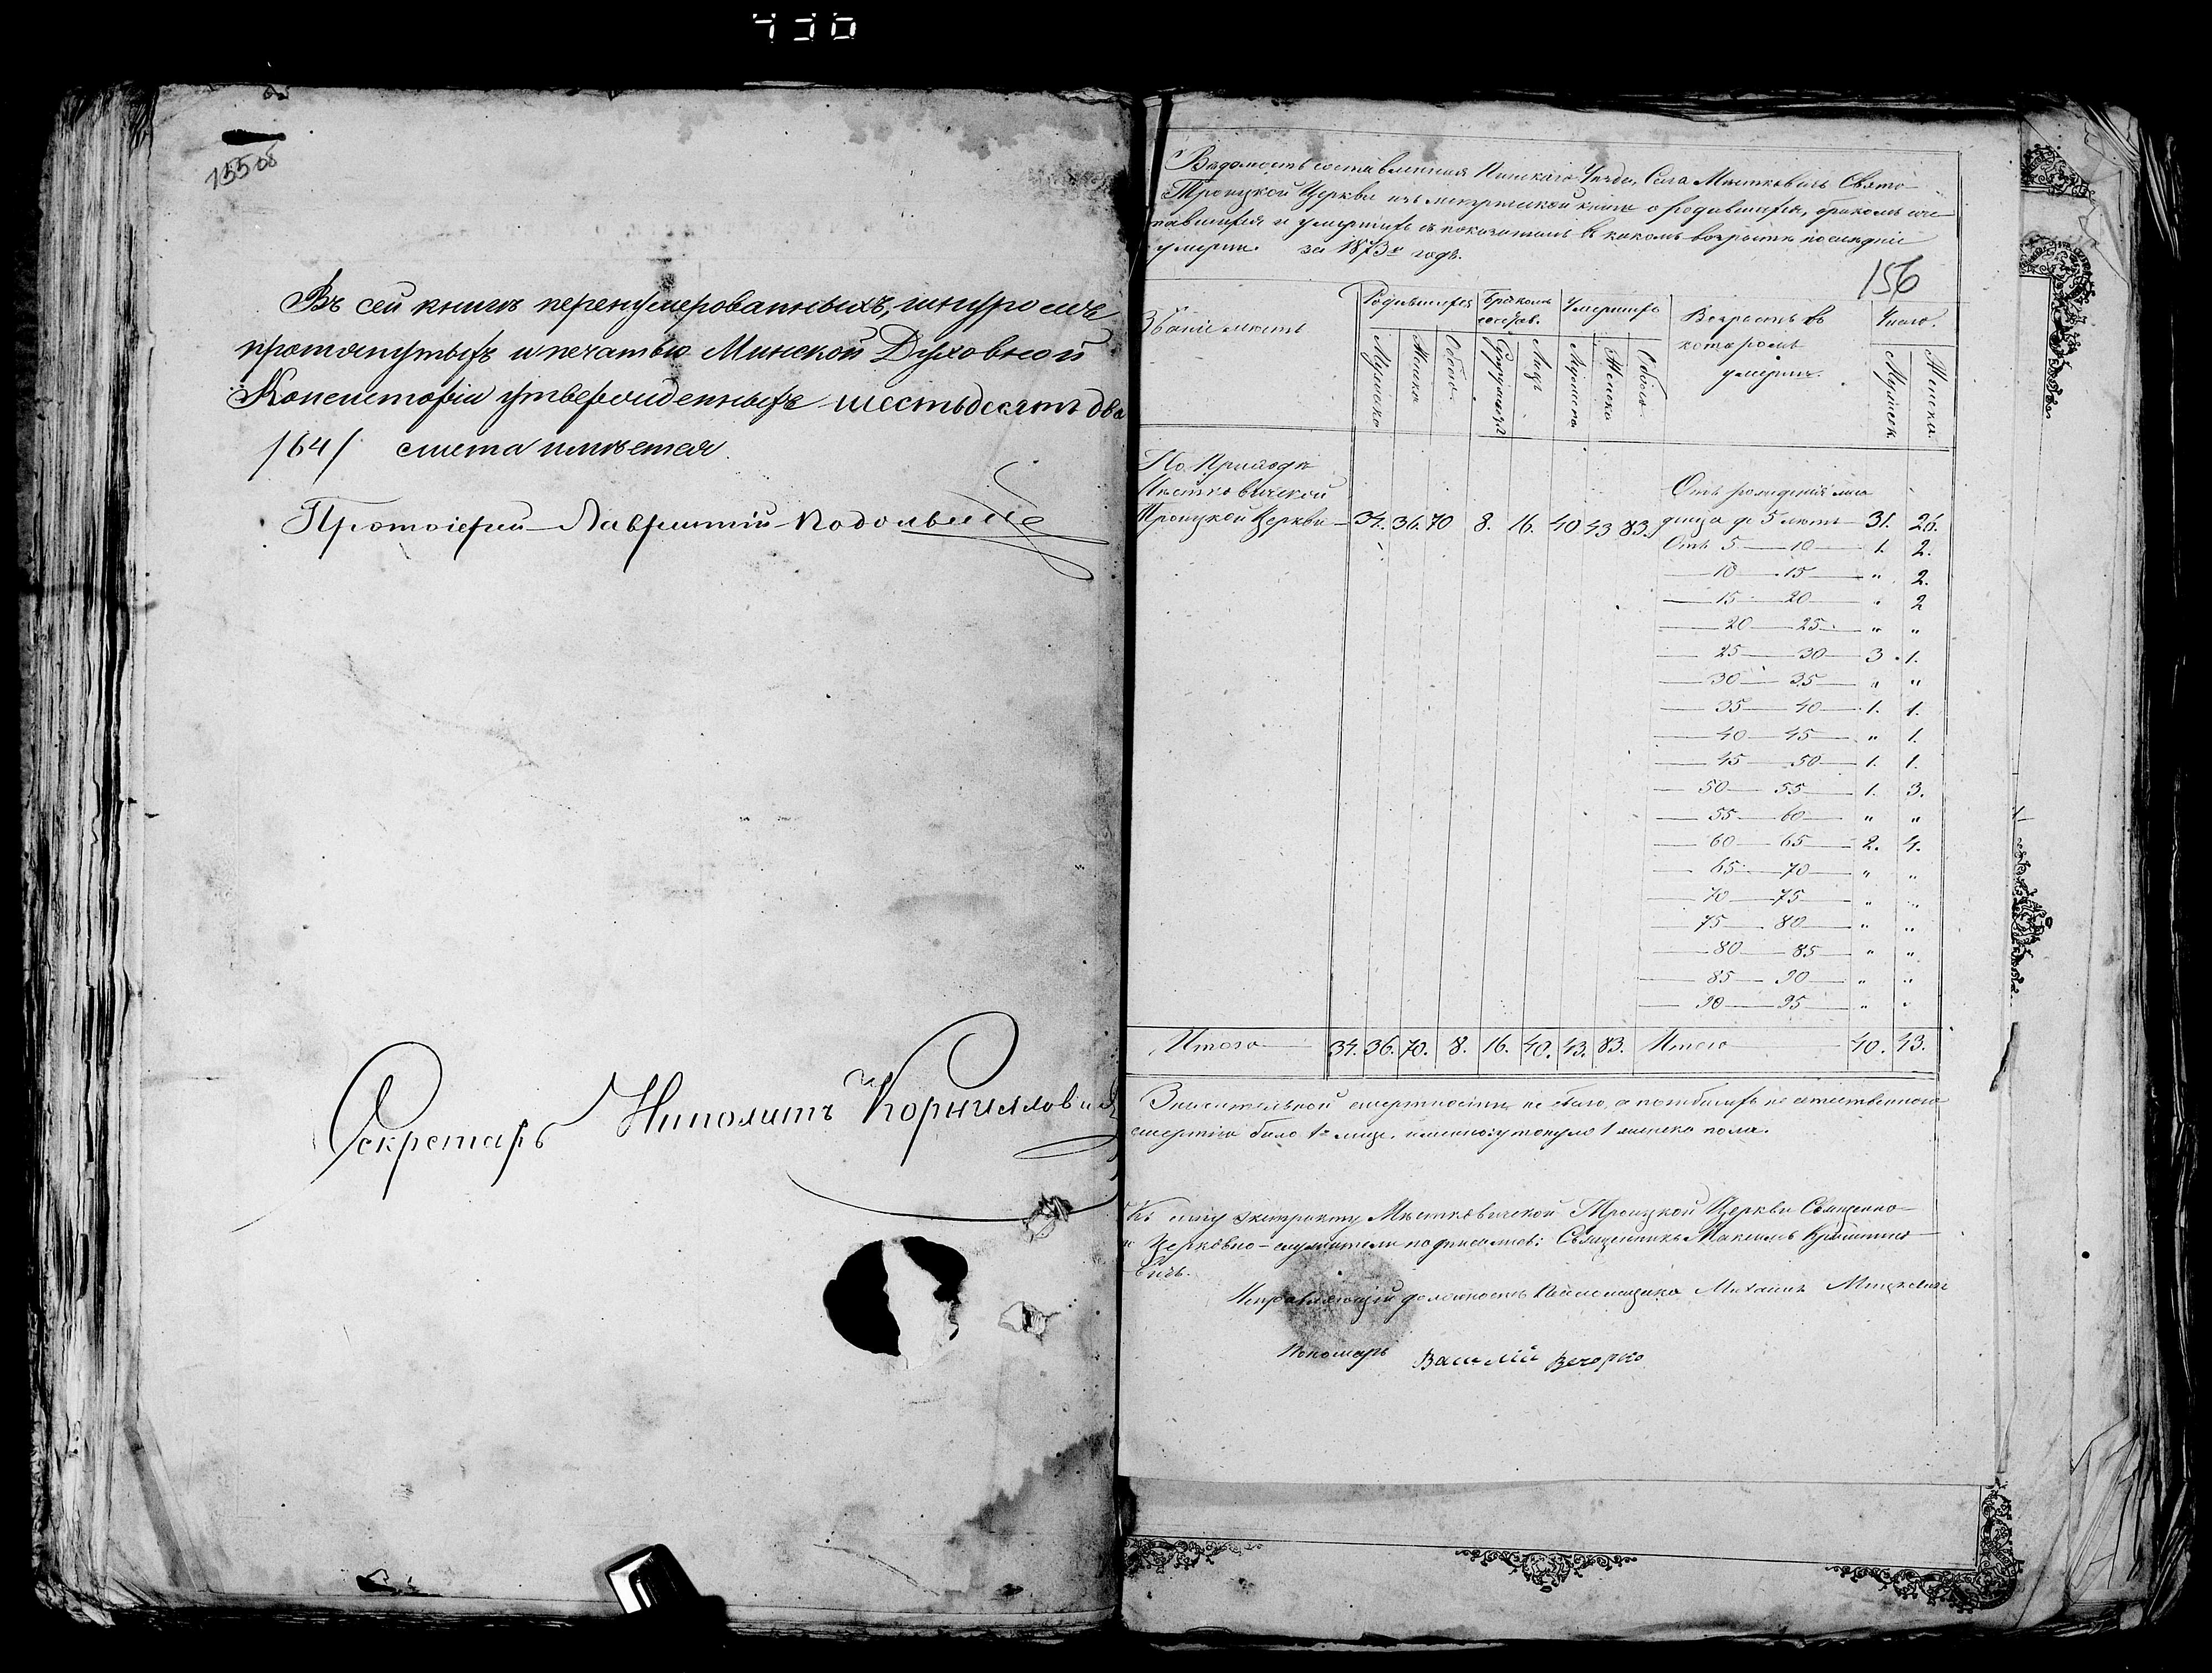 155об
Въ сей книгѣ перенумерованныхъ, шнуромъ
протянутыхъ и печатью Минской Духовной
Консисторіи утвержденныхъ шестьдесятъ два
/64/ листа имѣется
Протоіерей Лаврентій
Секретарь Ипполитъ Корниллович
Вѣдомость составленная Пинскаго Уѣзда, Села Мѣстковичъ Свято-
Троицкой Церкви изъ метрической книги о родившихся, бракомъ соче
тавшихся и умершихъ съ показаніемъ въ какомъ возрастѣ послѣдніе
умерли за 1873й годъ.
156
Званіе мѣстъ
Родившихся
Бракомъ сочетав.
Умершихъ
Возрастъ въ
которомъ
умерли.
Число.
Мужеска
Женска
Обоего
Супружествъ
Лицъ
Мужеска
Женска
Обоего
Мужеск.
Женска.
По Приходѣ
Мѣстковичской
Отъ рожденія мла
Троицкой Церкви — 34. 36. 70 8. 16. 40 43 83. денца до 5 лѣтъ — 31. 26.
Отъ 5 — 10 — 1. 2.
— 10 — 15 — " 2.
— 15 — 20 — " 2
— 20 — 25 — " "
— 25 — 30 — 3. 1.
— 30 — 35 — " "
— 35 — 40 — 1. 1.
— 40 — 45 — " 1.
— 45 — 50 — 1. 1.
— 50 — 55 — 1. 3.
— 55 — 60 — " "
— 60 — 65 — 2. 4.
— 65 — 70 — " "
— 70 — 75 — " "
— 75 — 80 — " "
— 80 — 85 — " "
— 85 — 90 — " "
— 90 — 95 — " "
Итого — 34. 36. 70. 8. 16. 40. 43. 83. Итого — 40. 43.
Значительной смертности не было, а погибшихъ не естественною
смертію было 1 лицо, именно: утонуло 1 женска пола.
Къ сему экстракту Мѣстковичской Троицкой Церкви Священно-
и Церковно-служители подписались: Священникъ Максимъ
вичъ.
Исправляющій должность Псаломщика Михаилъ Мицкевичъ
Пономарь Василій Вечорко